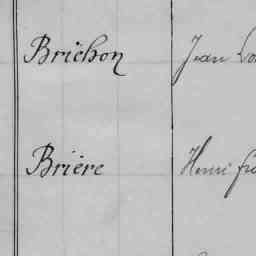 Briëhon Jean Lo
Brière Henri fr